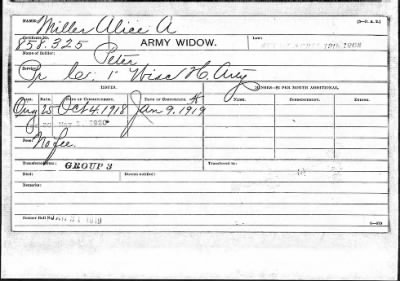 NAME: Miller Alice A
Certificate No.
858.325 ARMY WIDOW. Law:
Name of Soldier: Peter
Service: Pr Co. 1" Wisc H. Arty
ISSUES. MINORS—$2 PER MONTH ADDITIONAL.
RATE. DATE OF COMMENCEMENT. DATE OF CERTIFICATE. NAME. COMMENCEMENT. ENDING.
Orig 25 Oct 4. 1918 Jan 9. 1919
1920
Fees: No fee.
Transferred from GROUP 3 Transferred to:
Died: Bureau notified:
Remarks:
Former Roll No. 1919